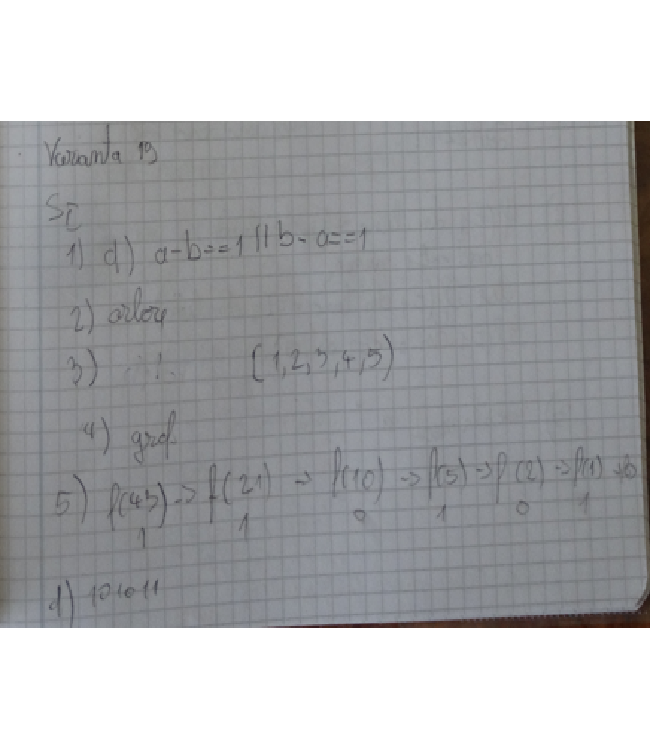 Varianta 19
SI
1) d) a-b==1 || b-a==1
2) arbore
3) (1,2,3,4,5)
4) graf
5) f(43) -> f(21) -> f(10) -> f(5) -> f(2) -> f(1) -> 0
1 1 0 1 0 1
d) 101011